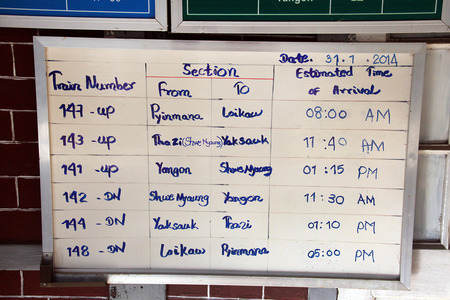 Date. 31.1.2014
Train Number Section Estimated Time of Arrival
From To
147-up Pyinmana Loikaw 08:00 AM
143-up Thazi (Shwe Nyaung) Yaksauk 11:40 AM
141-up Yangon Shwe Nyaung 01:15 PM
142-DN Shwe Nyaung Yangon 11:30 AM
144-DN Yaksauk Thazi 01:10 PM
148-DN Loikaw Pyinmana 05:00 PM